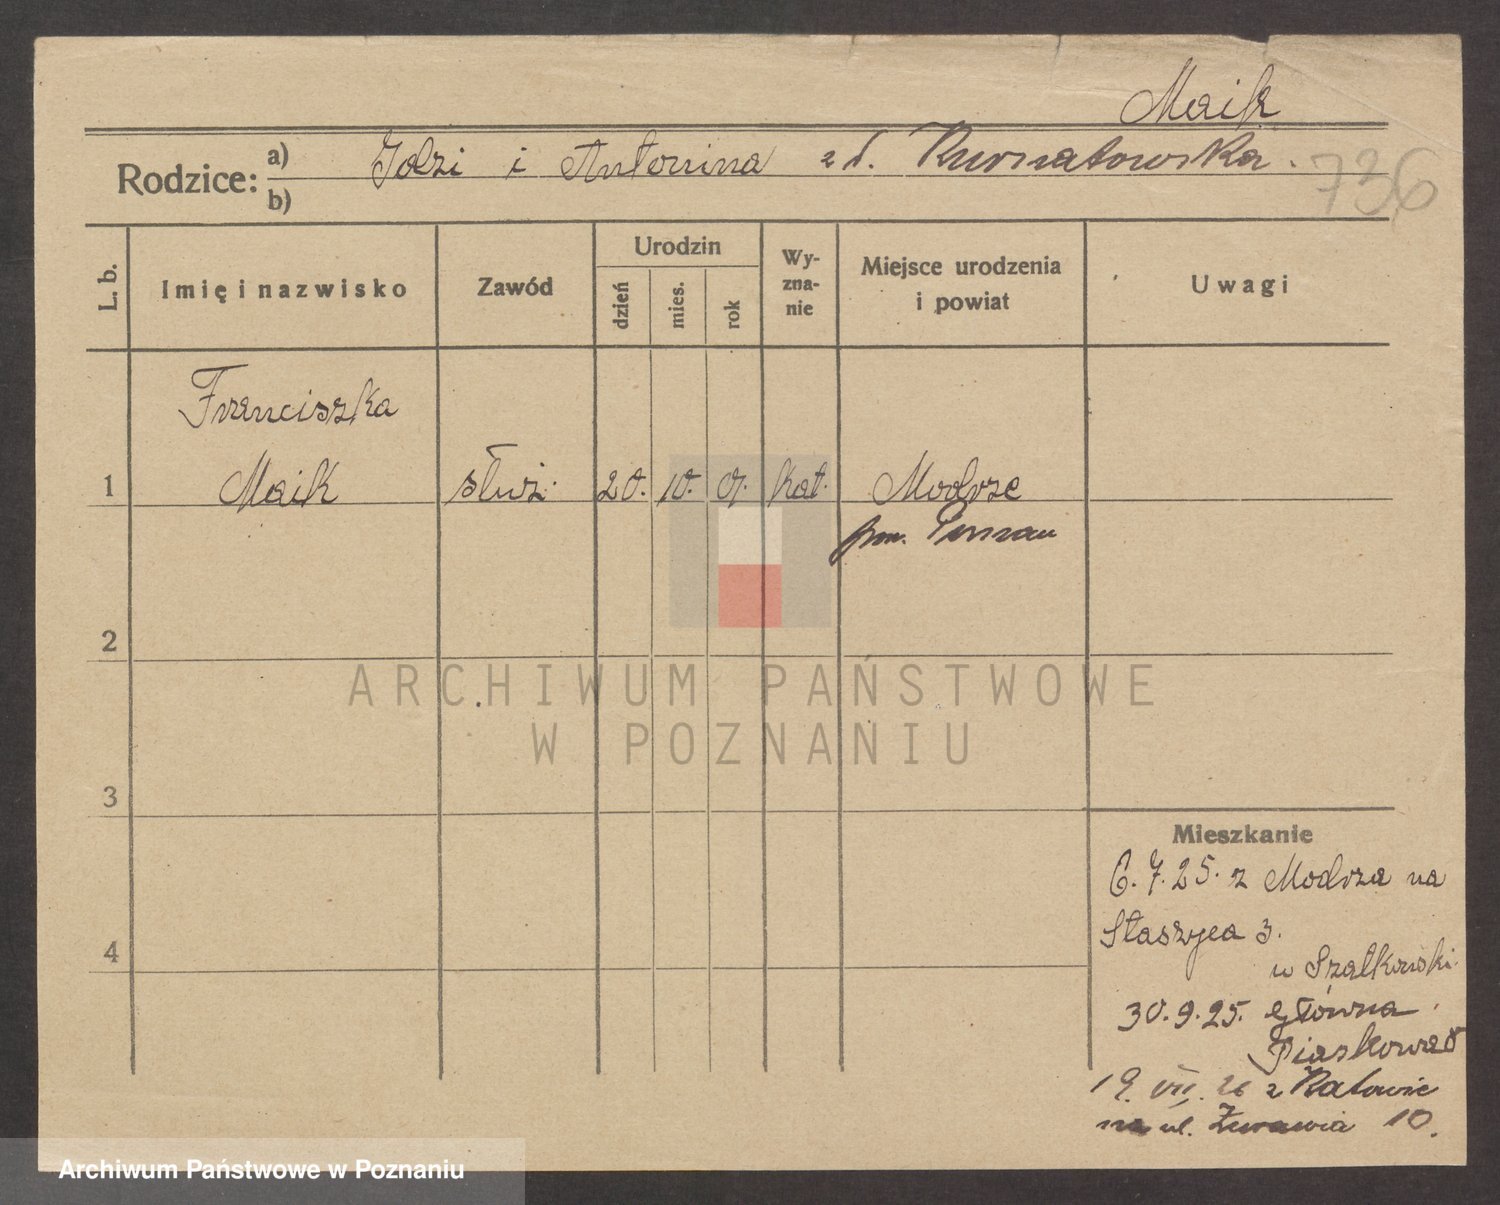 Maik
Rodzice: a) Idzi i Antonina z d. Kurnatowska.
b)
736
L. b. Imię i nazwisko Zawód Urodzin dzień mies. rok Wy-zna-nie Miejsce urodzenia i powiat Uwagi
Franciszka
1 Maik służ. 20. 10. 07. kat. Modrze
pow. Poznań
2
ARCHIWUM PAŃSTWOWE
W POZNANIU
3
Mieszkanie
6.7.25. z Modrza na
Staszyca 3.
4
u Szatkowski
30.9.25. Główna
Piaskowa 8
19. VII. 26 z Katowic
na ul. Żurawia 10.
Archiwum Państwowe w Poznaniu